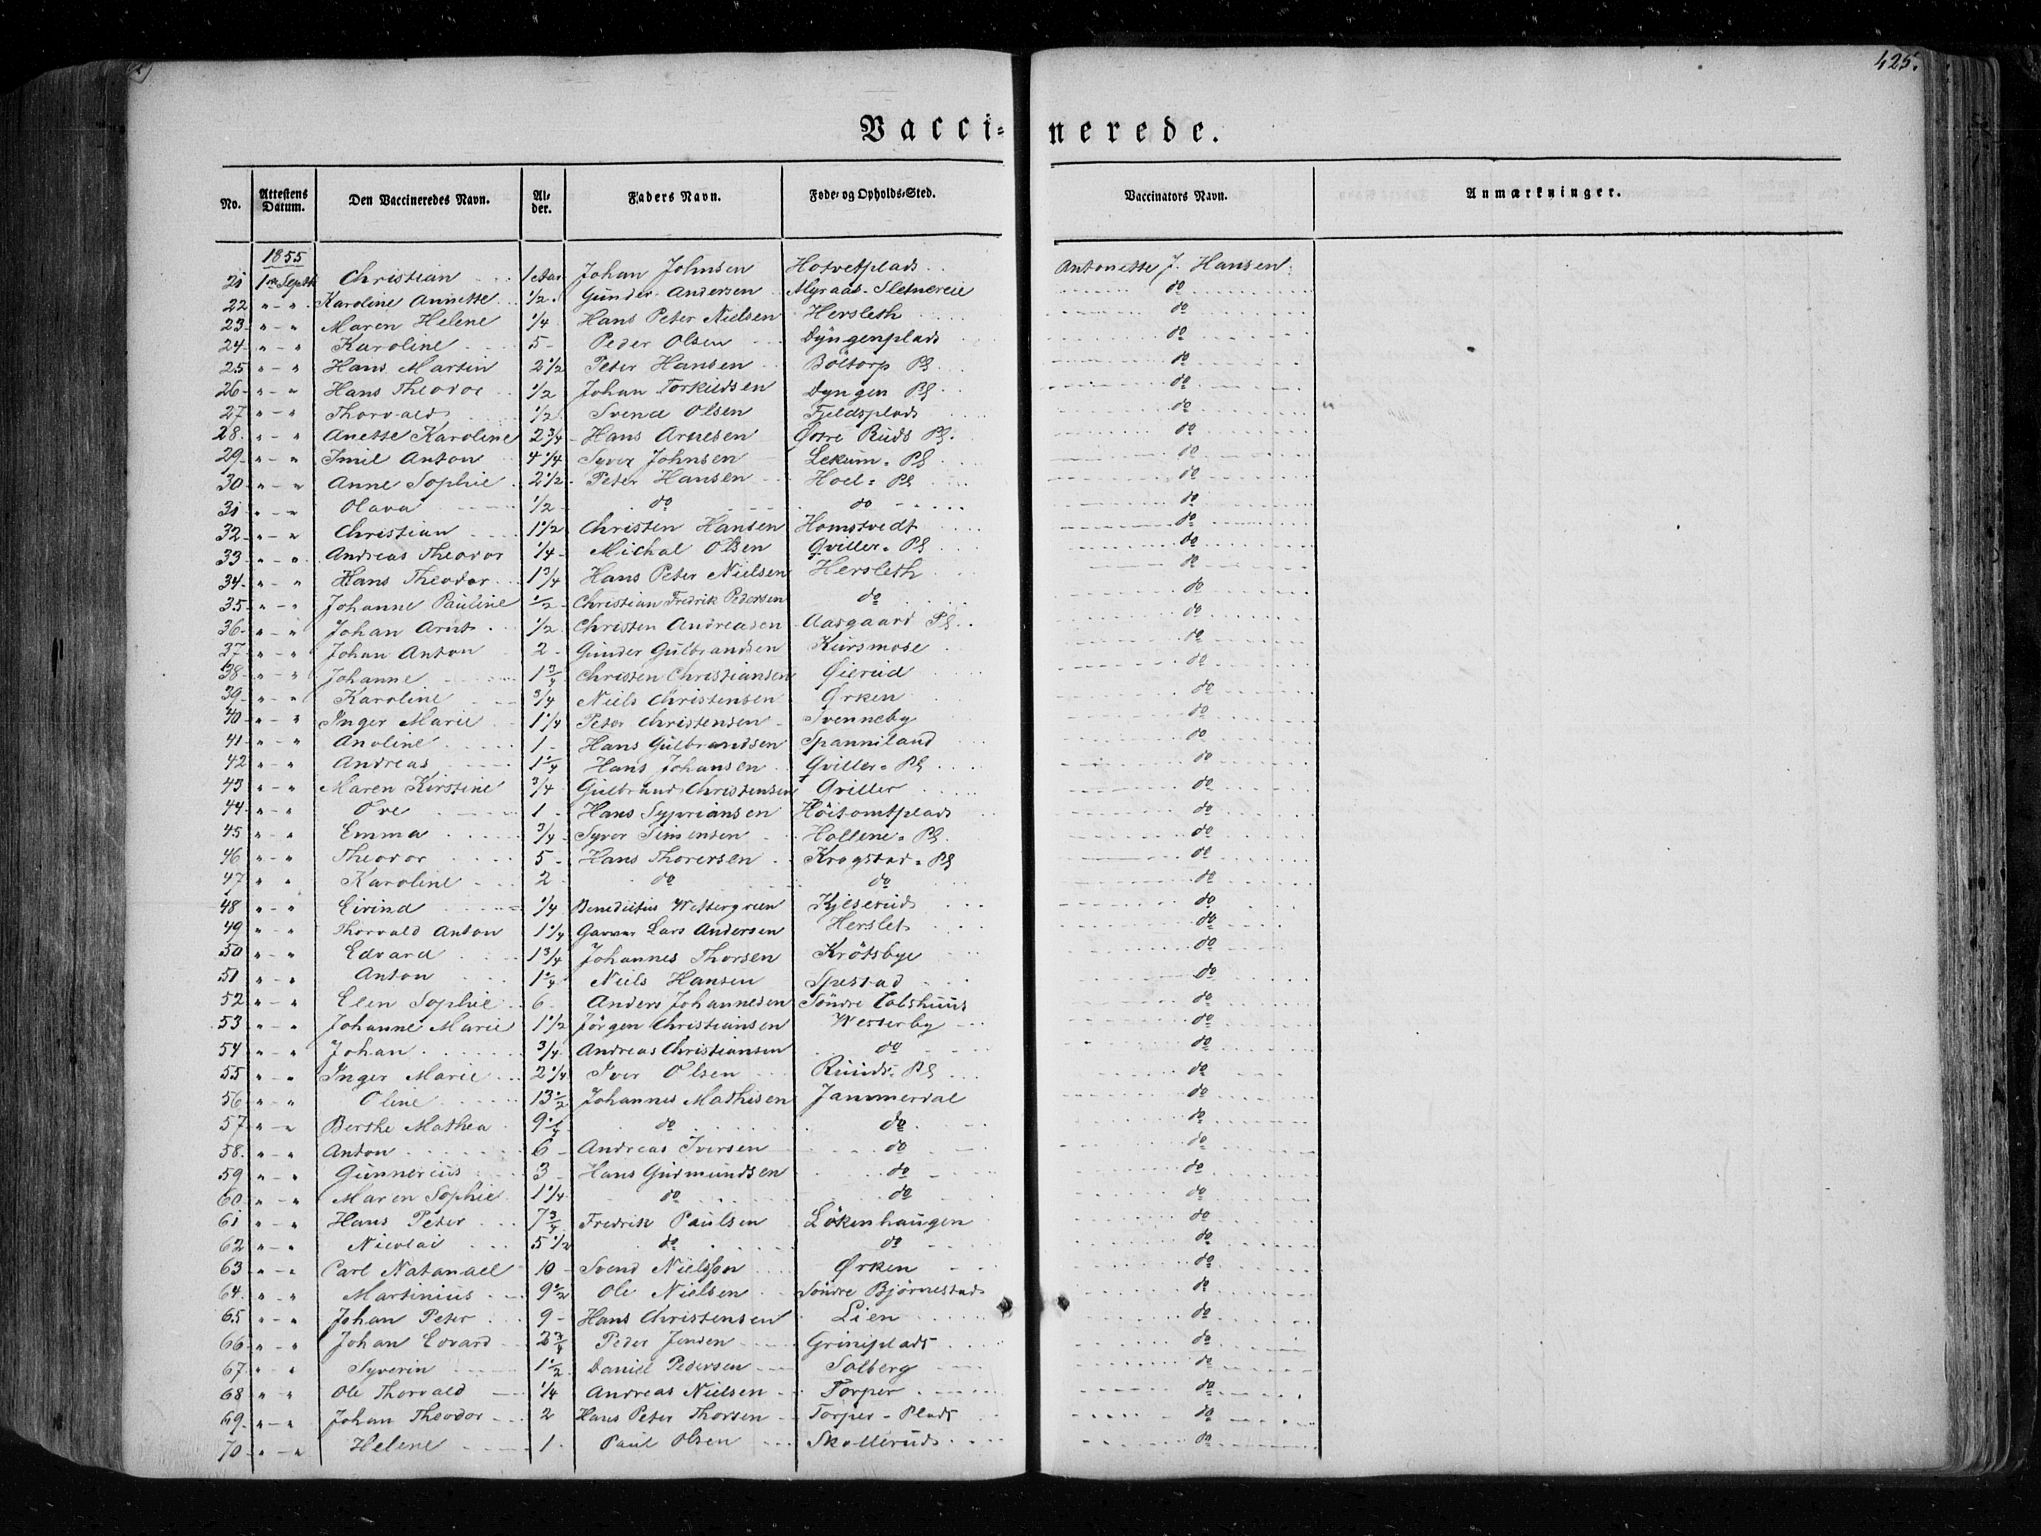 425.
Vacci- nerede.
No. Attestens Datum. Den Vaccineredes Navn. Al- der. Faders Navn. Føde- og Opholds-Sted. Vaccinators Navn. Anmærkninger.
1855
21 1ste Septb Christian 1 Aar Johan Johnsen Hotvetplads Antonette J. Hansen
22 " - " Karoline Annette 1/2 Gunder Andersen Myraas Sletnereie do
23 " - " Maren Helene 1/4 Hans Peter Nielsen Hersleth do
24 " - " Karoline 5 - Peder Olsen Dyngenplads do
25 " - " Hans Martin 2 1/2 Peter Hansen Böltorp Pl do
26 " - " Hans Theodor 1/2 Johan Torkildsen Dyngen Pl do
27 " - " Thorvald 1/2 Svend Olsen Fjeldsplads do
28 " - " Anette Karoline 2 3/4 Hans Arnesen Østre Ruds Pl. do
29 " - " Imil Anton 4 1/4 Syver Johnsen Lekum - Pl do
30 " - " Anne Sophie 2 1/2 Peter Hansen Hoel - Pl do
31 " - " Olava 1/2 do do do
32 " - " Christian 1 1/2 Christen Hansen Homstvedt do
33 " - " Andreas Theodor 1/4 Michal Olsen Qviller - Pl do
34 " - " Hans Theodor 1 3/4 Hans Peter Nielsen Hersleth do
35 " - " Johanne Pauline 1/2 Christian Fredrik Pedersen do do
36 " - " Johan Arnt 1/2 Christen Andreasen Aasgaard Pl do
37 " - " Johan Anton 2 - Gunder Gulbrandsen Kursmose do
38 " - " Johanne 1 3/4 Christen Christiansen Øierud do
39 " - " Karoline 3/4 Niels Christensen Ørken do
40 " - " Inger Marie 1 1/4 Peter Christensen Svenneby do
41 " - " Anoline 1 - Hans Gulbrandsen Spanniland do
42 " - " Andreas 1 1/4 Hans Johansen Qviller - Pl do
43 " - " Maren Kirstine 3/4 Gulbrand Christensen Qviller do
44 " - " Ove 1 - Hans Sypriansen Höitomtplads do
45 " - " Emma 3/4 Syver Simensen Hollene - Pl. do
46 " - " Theodor 5 - Hans Thoresen Krogstad - Pl do
47 " - " Karoline 2 do do do
48 " - " Eirind 1/4 Benedictus Westergreen Kjelserud do
49 " - " Thorvald Anton 1 1/4 Garver Lars Andersen Herslet do
50 " - " Edvard 1 3/4 Johannes Thorsen Krötsbye do
51 " - " Anton 1 1/4 Niels Hansen Spestad do
52 " - " Elen Sophie 6 Anders Johannesen Söndre Colshuus do
53 " - " Johanne Marie 1 1/2 Jörgen Christiansen Westerby do
54 " - " Johan 3/4 Andreas Christiansen do do
55 " - " Inger Marie 2 1/4 Iver Olsen Ruuds - Pl do
56 " - " Oline 13 1/2 Johannes Mathisen Jammerdal do
57 " - " Berthe Mathea 9 1/4 do do do
58 " - " Anton 6 - Andreas Iversen do do
59 " - " Gunnerius 3 - Hans Gudmundsen do do
60 " - " Maren Sophie 1 1/4 do do do
61 " - " Hans Peter 7 3/4 Fredrik Paulsen Lökenhaugen do
62 " - " Nicolai 5 1/2 do do do
63 " - " Carl Natanael 10 - Svend Nielsson Ørken do
64 " - " Martinius 9 1/2 Ole Nielsen Søndre Bjørnestad do
65 " - " Johan Peter 9 - Hans Christensen Lien do
66 " - " Johan Edvard 2 3/4 Peder Jensen Griniplads do
67 " - " Syverin 1 1/2 Daniel Pedersen Solberg do
68 " - " Ole Thorvald 1/4 Andreas Nielsen Torper do
69 " - " Johan Theodor 2 Hans Peter Thorsen Torper - Plads do
70 " - " Helene 1 Paul Olsen Skollerud do